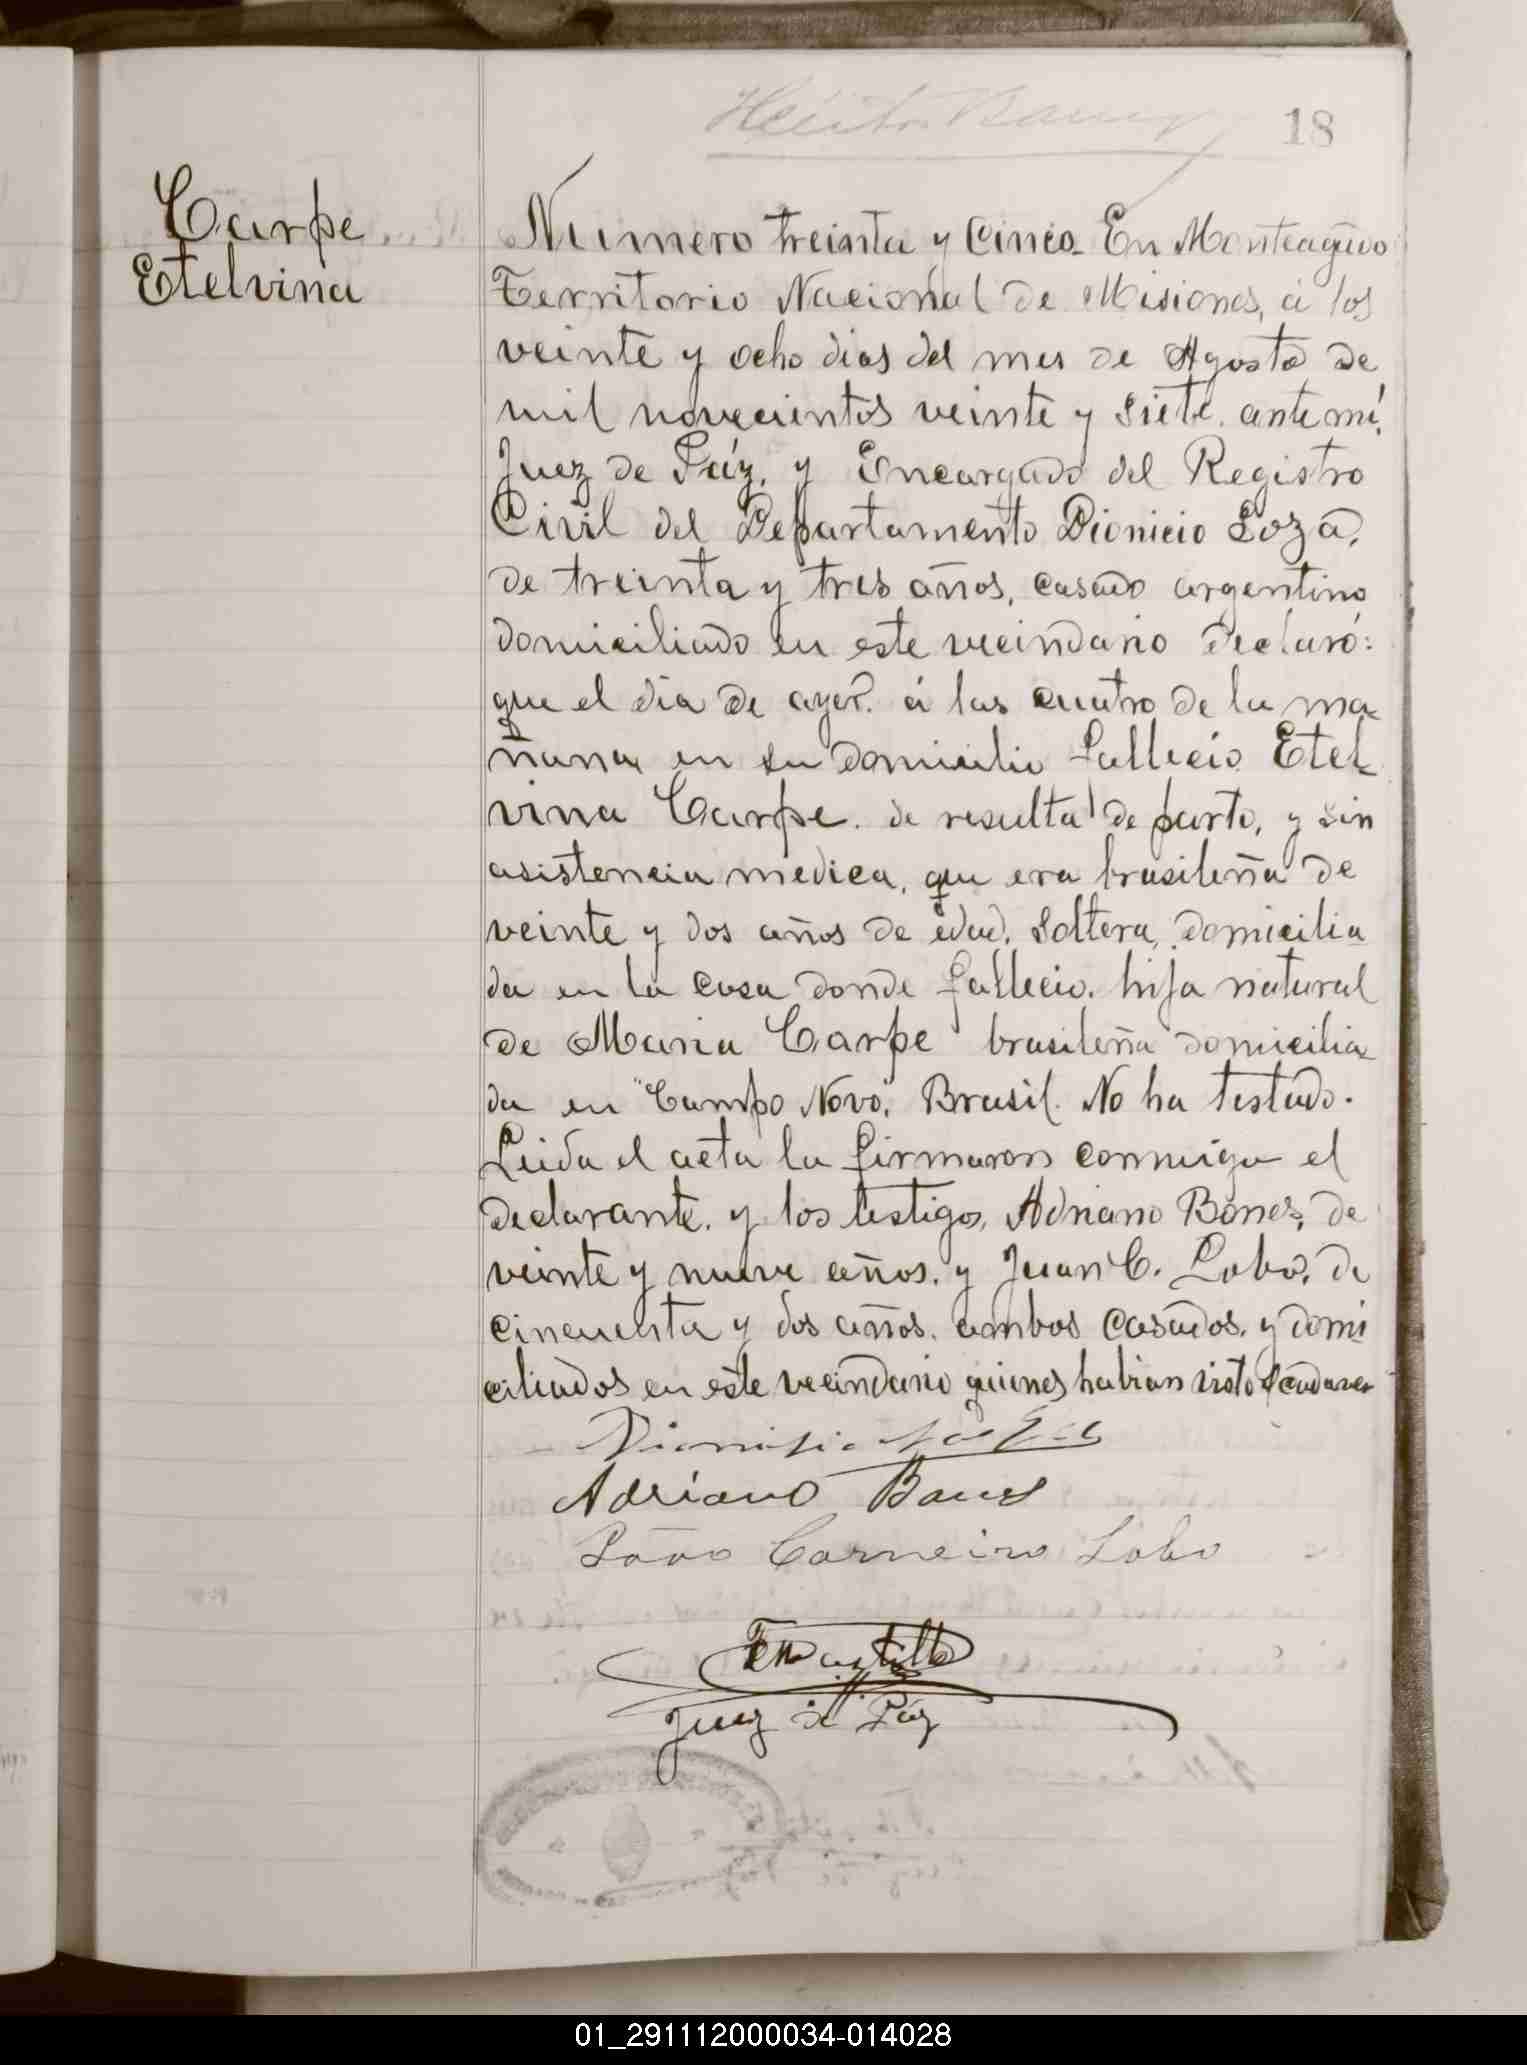 18
Carpe
Etelvina
Numero treinta y cinco. En Monteagudo
Territorio Nacional de Misiones, á los
veinte y ocho dias del mes de Agosto de
mil novecientos veinte y siete. ante mí,
Juez de Páz, y Encargado del Registro
Civil del Departamento Dionicio Loza,
de treinta y tres años, casado argentino
domiciliado en este vecindario declaró:
que el dia de ayer. á las cuatro de la ma-
ñana en su domicilio fallecio Etel-
vina Carpe. de resulta de parto, y sin
asistencia medica, que era brasileña de
veinte y dos años de edad, soltera, domicilia
da en la casa donde fallecio. hija natural
de Maria Carpe brasileña domicilia-
da en "Campo Novo", Brasil. No ha testado.
Leida el acta la firmaron conmigo el
declarante. y los testigos, Adriano Bones, de
veinte y nueve años. y Juan C. Lobo, de
cincuenta y dos años. ambos casados. y domi
ciliados en este vecindario quienes habian visto el cadaver
Dionisio
Adriano Bones
João Carneiro Lobo
Juez de Páz
01_291112000034-014028